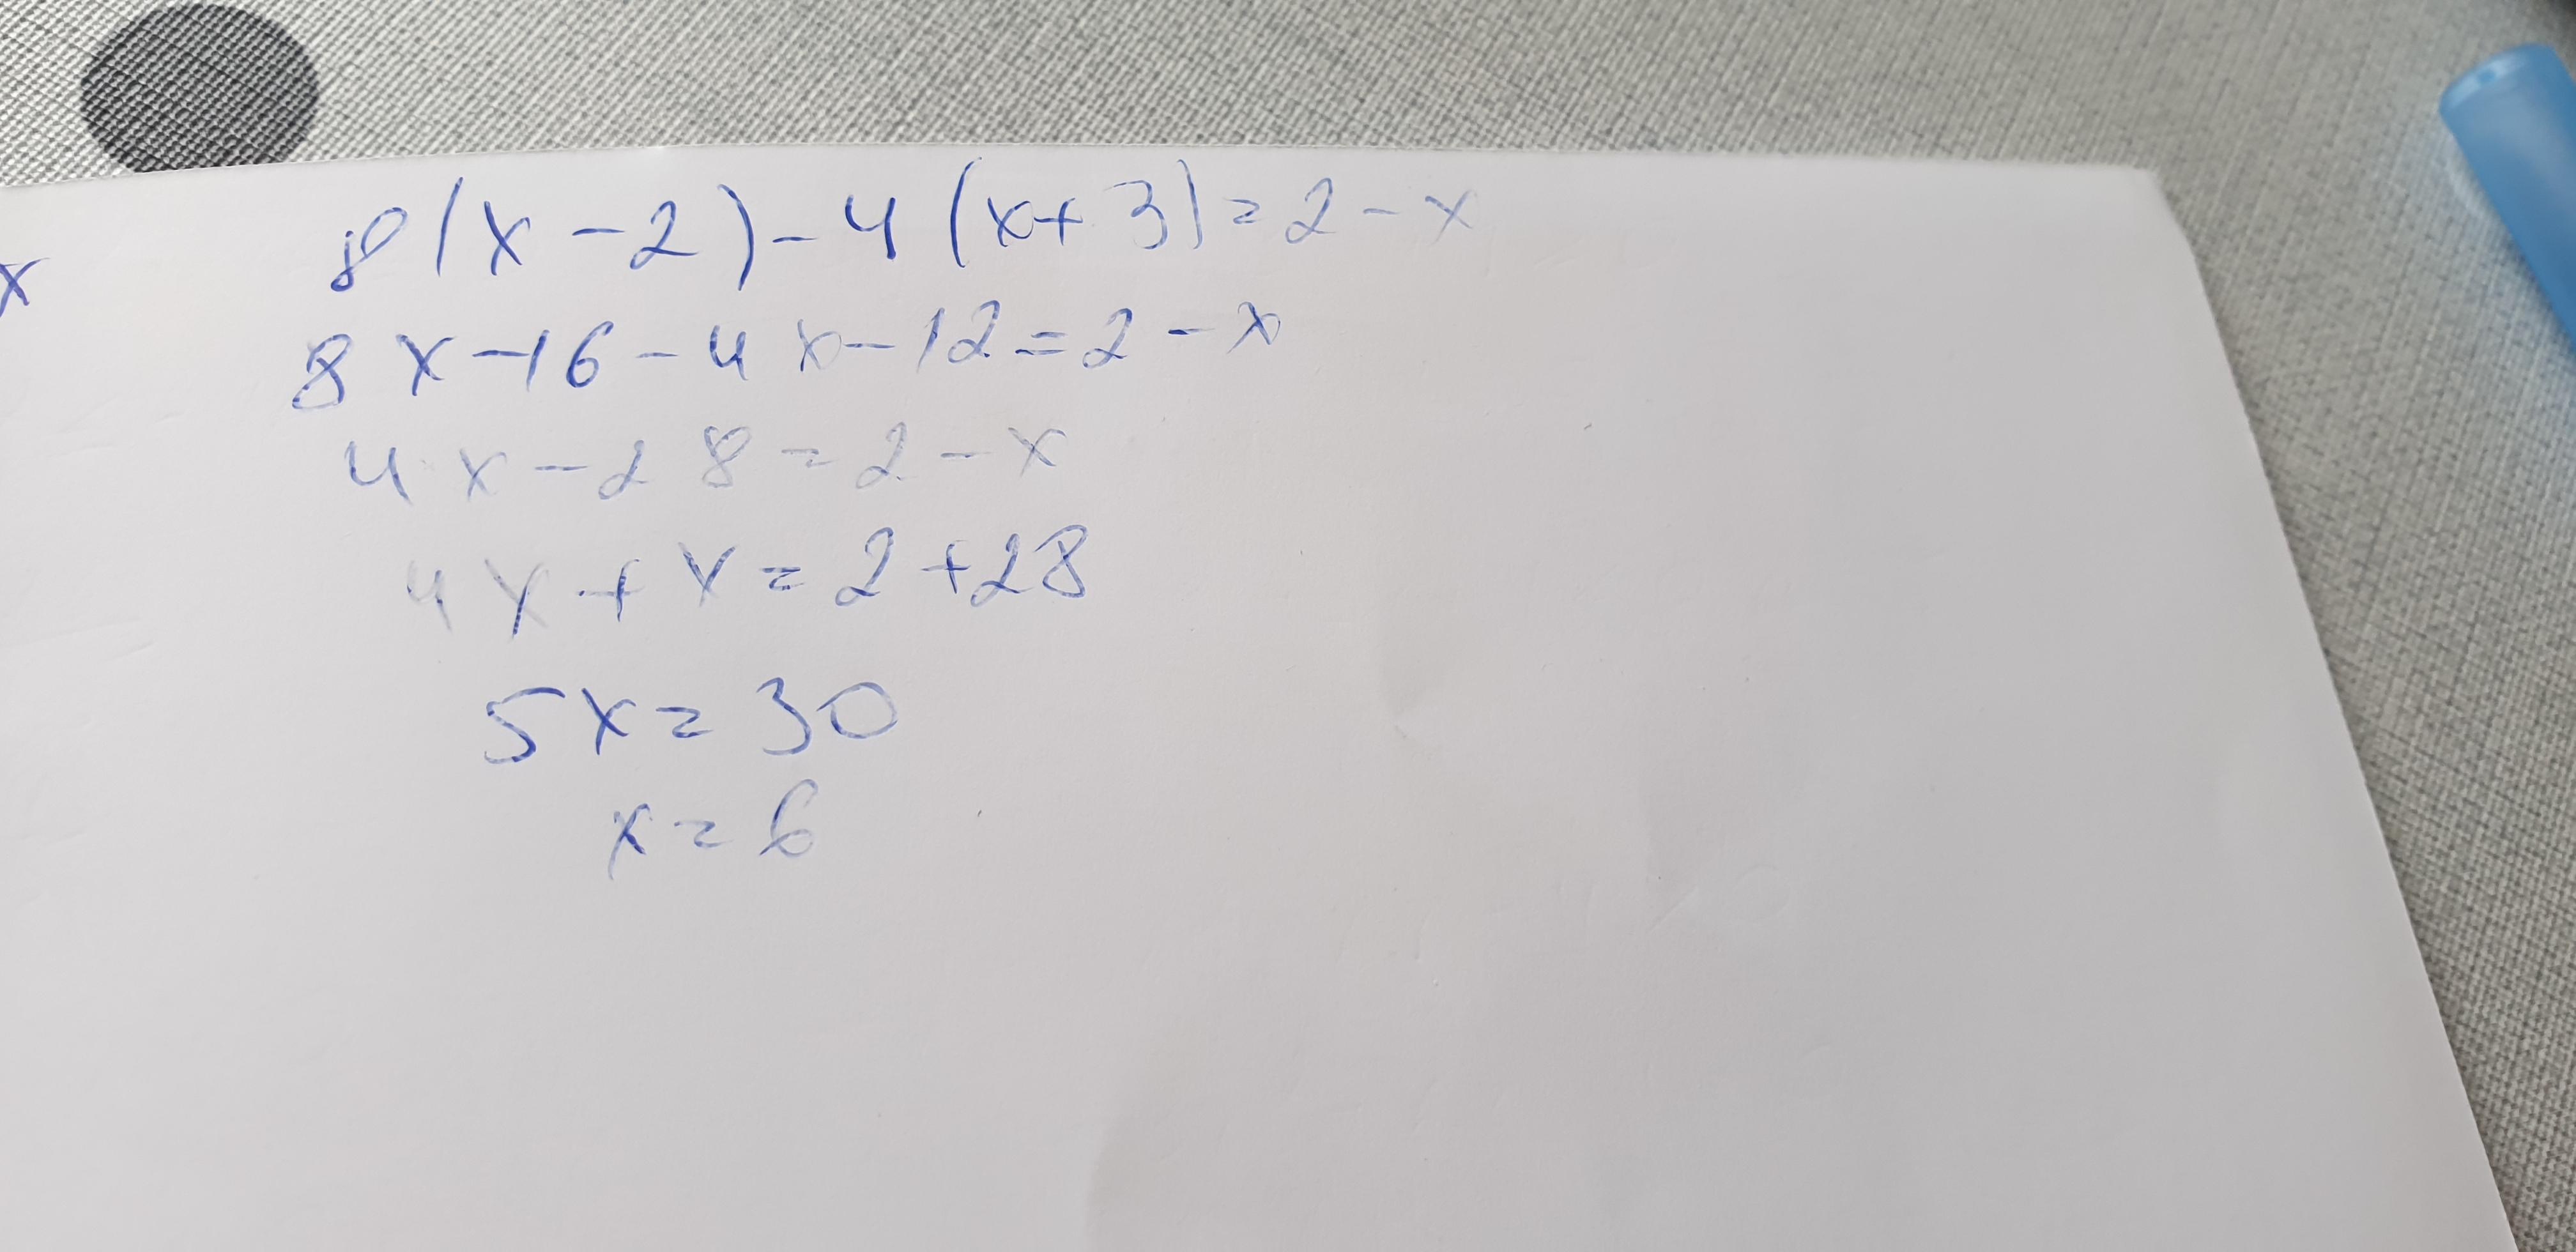 8(x-2)-4(x+3)=2-x
x
8x-16-4x-12=2-x
4x-28=2-x
4x+x=2+28
5x=30
x=6